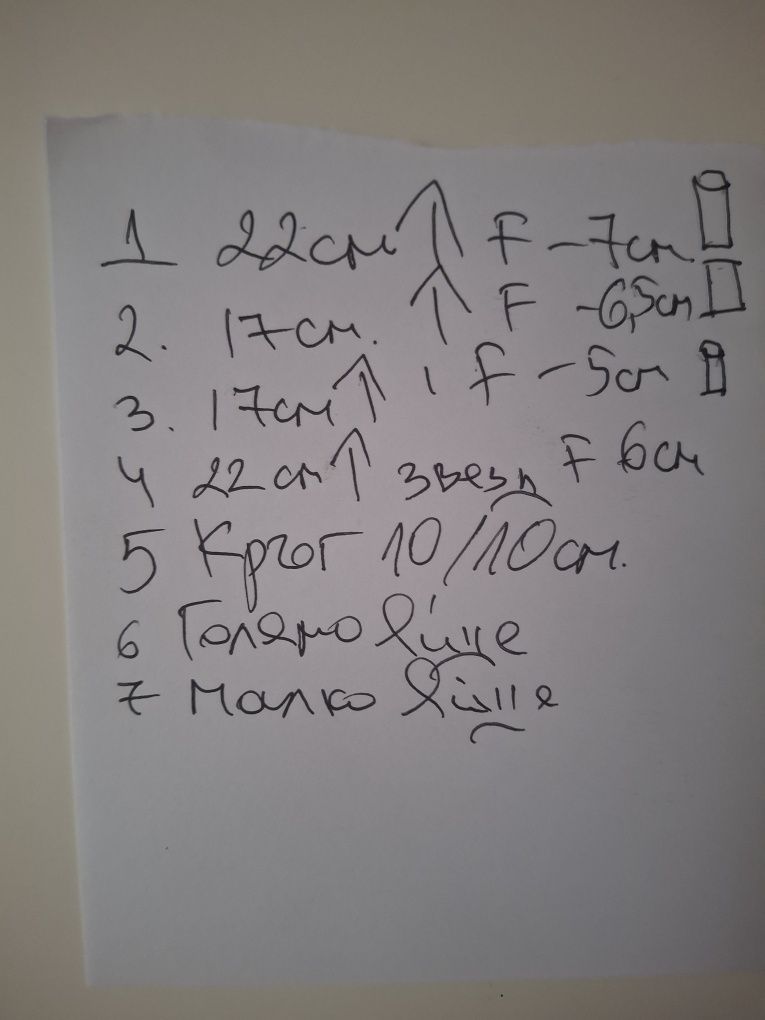 1 22см ↑ F -7см
2. 17см. ↑ F -6,5см
3. 17см ↑ , F -5см
4 22см ↑ звезд F 6см
5 Кръг 10/10см.
6 Голямо
7 Малко